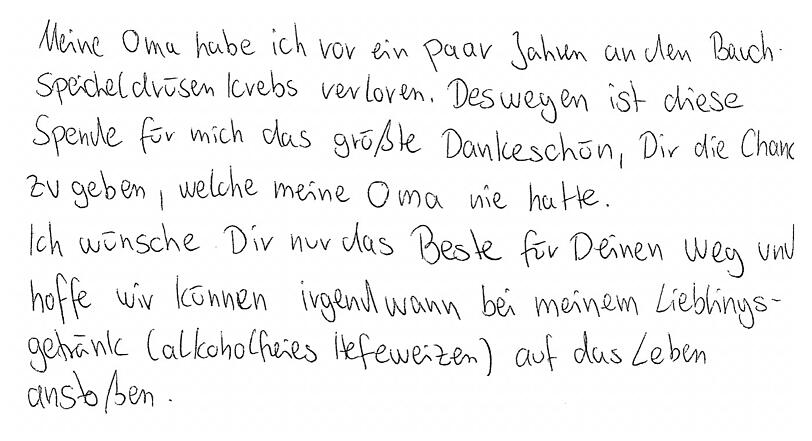 Meine Oma habe ich vor ein paar Jahren an den Bauch-
speicheldrüsenkrebs verloren. Deswegen ist diese
Spende für mich das größte Dankeschön, Dir die Chanc
zu geben, welche meine Oma nie hatte.
Ich wünsche Dir nur das Beste für Deinen Weg und
hoffe wir können irgendwann bei meinem Lieblings-
getränk (alkoholfreies Hefeweizen) auf das Leben
anstoßen.